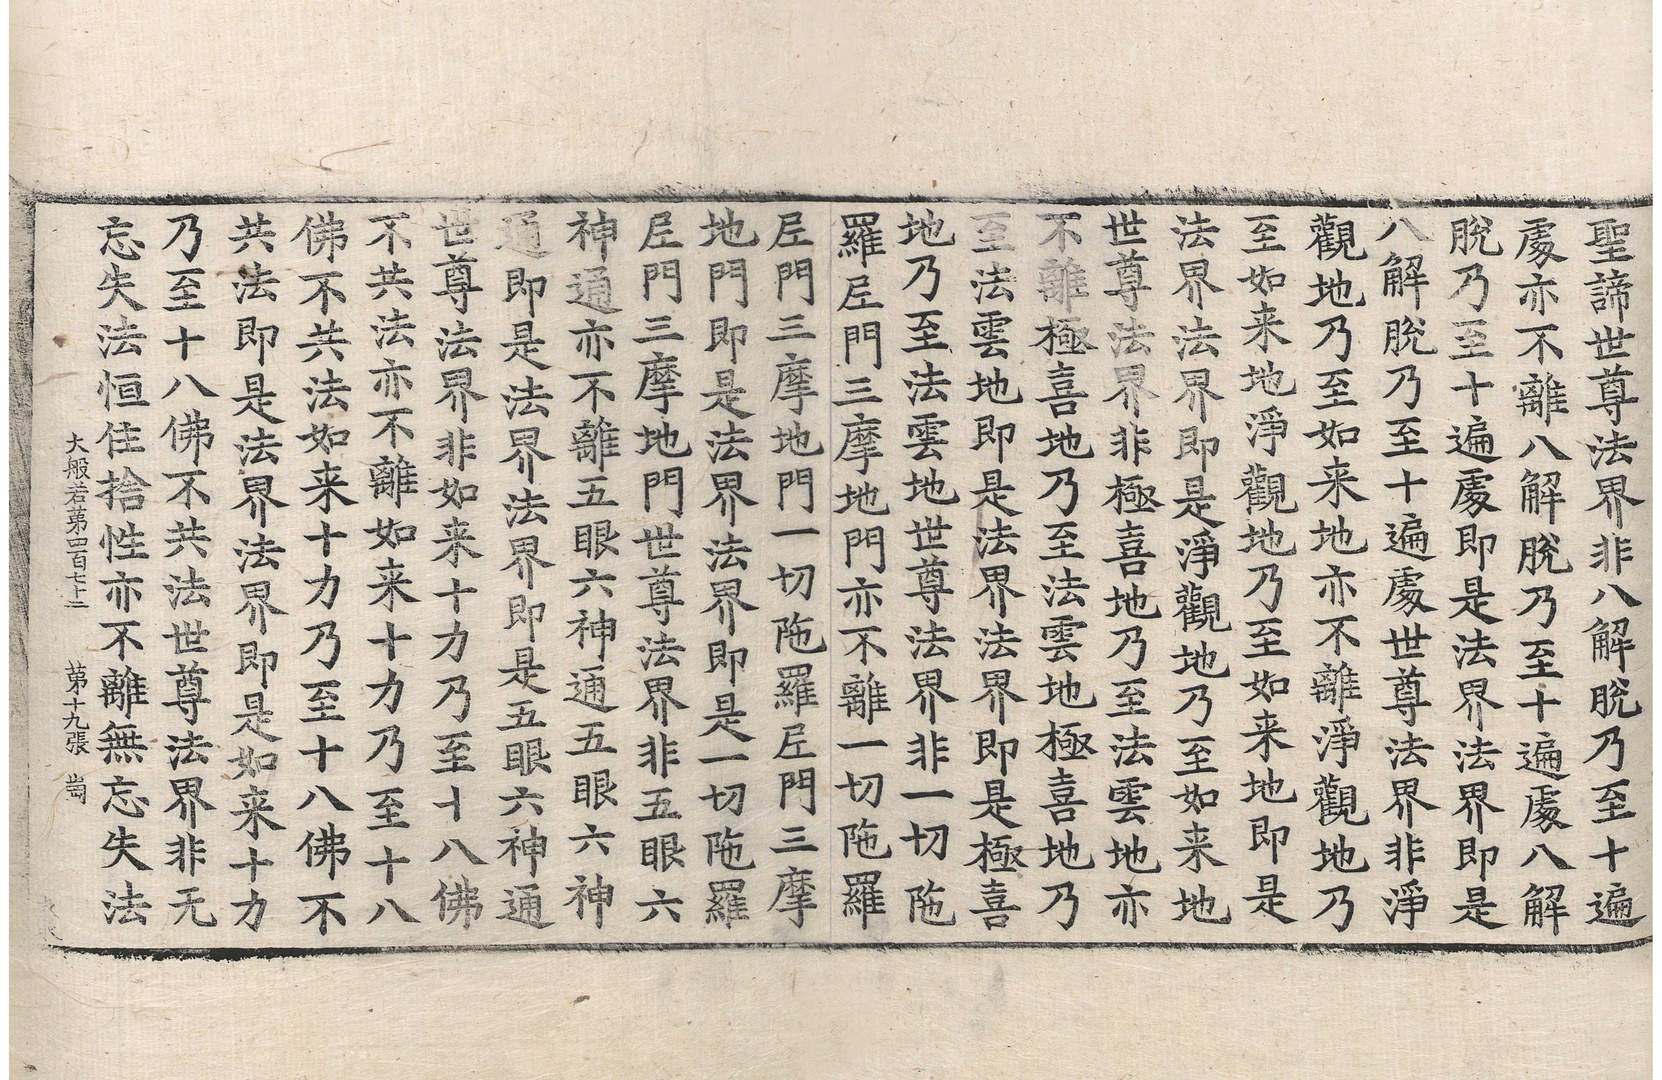 聖諦世尊法界非八解脫乃至十遍
處亦不離八解脫乃至十遍處八解
脫乃至十遍處即是法界法界即是
八解脫乃至十遍處世尊法界非淨
觀地乃至如来地亦不離淨觀地乃
至如来地淨觀地乃至如来地即是
法界法界即是淨觀地乃至如来地
世尊法界非極喜地乃至法雲地亦
不離極喜地乃至法雲地極喜地乃
至法雲地即是法界法界即是極喜
地乃至法雲地世尊法界非一切陁
羅尼門三摩地門亦不離一切陁羅
尼門三摩地門一切陁羅尼門三摩
地門即是法界法界即是一切陁羅
尼門三摩地門世尊法界非五眼六
神通亦不離五眼六神通五眼六神
通即是法界法界即是五眼六神通
世尊法界非如来十力乃至十八佛
不共法亦不離如来十力乃至十八
佛不共法如来十力乃至十八佛不
共法即是法界法界即是如来十力
乃至十八佛不共法世尊法界非无
忘失法恒住捨性亦不離無忘失法
大般若第四百七十二 第十九張